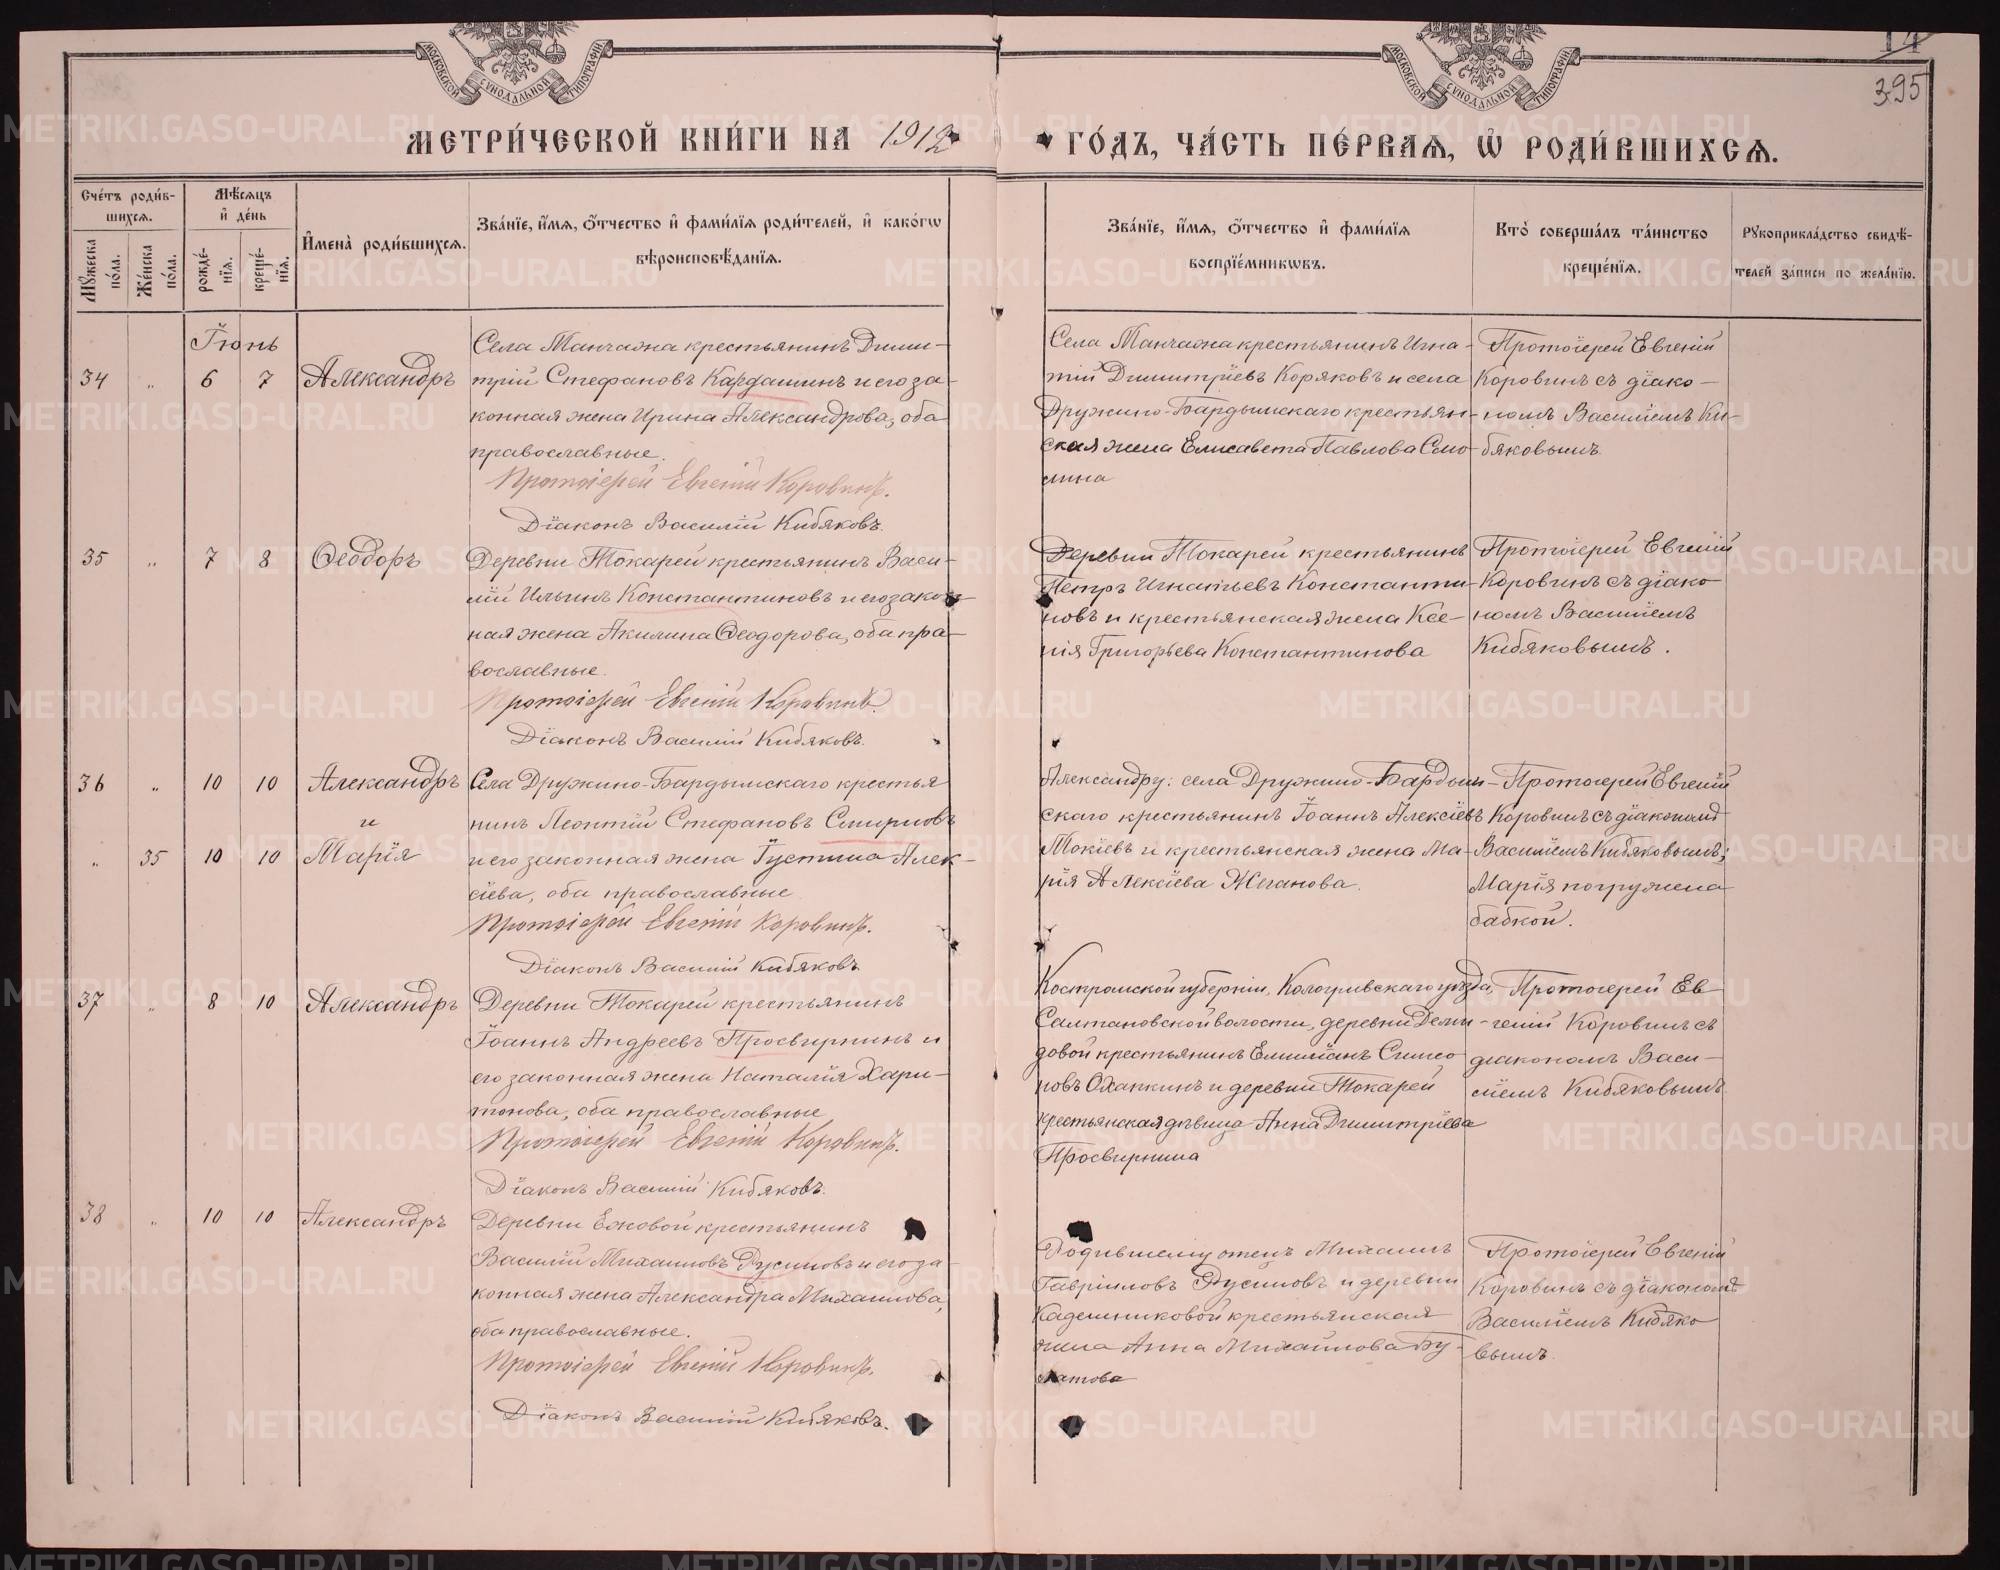 МОСКОВСКОЙ СѴНОДАЛЬНОЙ ТИПОГРАФІИ
МОСКОВСКОЙ СѴНОДАЛЬНОЙ ТИПОГРАФІИ
14
395
МЕТРИ́ЧЕСКОЙ КНИ́ГИ НА 1912
ГО́ДЪ, ЧА́СТЬ ПЕ́РВАѦ, Ѡ РОДИ́ВШИХСѦ.
Сче́тъ роди́в-
шихсѧ.
Мꙋжеска по́ла.
Же́нска по́ла.
Мѣ́сѧцъ
и҆ де́нь
рожде́-
нїѧ.
креще́-
нїѧ.
И҆мена̀ роди́вшихсѧ.
Зва́нїе, и҆́мѧ, ѻ҆́тчество и҆ фами́лїѧ роди́телей, и҆ како́гѡ
вѣроисповѣ́данїѧ.
Зва́нїе, и҆́мѧ, ѻ҆́тчество и҆ фами́лїѧ
воспрїе́мникѡвъ.
Кто̀ соверша́лъ та́инство
креще́нїѧ.
Рꙋкоприкла́дство свидѣ́-
телей за́писи по жела́нїю.
Іюнь
34 „ 6 7 Александръ
Села Манчажа крестьянинъ Дими-
трій Стефановъ Кардашинъ и его за-
конная жена Ирина Александрова, оба
православные.
Протоіерей Евгеній Коровинъ.
Діаконъ Василій Кибяковъ.
Села Манчажа крестьянинъ Игна-
тій Димитріевъ Коряковъ и села
Дружино-Бардымскаго крестьян-
ская жена Елисавета Павлова Смо-
лина
Протоіерей Евгеній
Коровинъ съ діако-
номъ Василіемъ Ки-
бяковымъ.
35 „ 7 8 Ѳеодоръ
Деревни Токарей крестьянинъ Васи-
лій Ильинъ Константиновъ и его закон-
ная жена Акилина Ѳеодорова, оба пра-
вославные.
Протоіерей Евгеній Коровинъ.
Діаконъ Василій Кибяковъ.
Деревни Токарей крестьянинъ
Петръ Игнатьевъ Константи-
новъ и крестьянская жена Ксе-
нія Григорьева Константинова
Протоіерей Евгеній
Коровинъ съ діако-
номъ Василіемъ
Кибяковымъ.
36 „ 10 10 Александръ
и
„ 35 10 10 Марія
Села Дружино-Бардымскаго крестья
нинъ Леонтій Стефановъ Смирновъ
и его законная жена Іустина Алек-
сіева, оба православные
Протоіерей Евгеній Коровинъ.
Діаконъ Василій Кибяковъ
Александру: села Дружино-Бардым-
скаго крестьянинъ Іоаннъ Алексіевъ
Мокіевъ и крестьянская жена Ма-
рія Алексіева Жеганова.
Протоіерей Евгеній
Коровинъ съ діакономъ
Василіемъ Кибяковымъ;
Марія погружена
бабкой.
37 „ 8 10 Александръ
Деревни Токарей крестьянинъ
Іоаннъ Андреевъ Просвирнинъ и
его законная жена Наталія Хари-
тонова, оба православные
Протоіерей Евгеній Коровинъ.
Діаконъ Василій Кибяковъ.
Костромской губерніи, Кологривскаго уѣзда,
Салтановской волости, деревни Деми-
довой крестьянинъ Емиліанъ Симео
новъ Оханкинъ и деревни Токарей
крестьянская дѣвица Анна Димитріева
Просвирнина
Протоіерей Ев
геній Коровинъ съ
діакономъ Васи-
ліемъ Кибяковымъ
38 „ 10 10 Александръ
Деревни Ежовой крестьянинъ
Василій Михаиловъ Русиновъ и его за-
конная жена Александра Михаилова,
оба православные.
Протоіерей Евгеній Коровинъ.
Діаконъ Василій Кибяковъ.
Родившему отецъ Михаилъ
Гавріиловъ Русиновъ и деревни
Кадешниковой крестьянская
жена Анна Михаилова Бу-
латова
Протоіерей Евгеній
Коровинъ съ діакономъ
Василіемъ Кибяко
вымъ.
METRIKI.GASO-URAL.RU